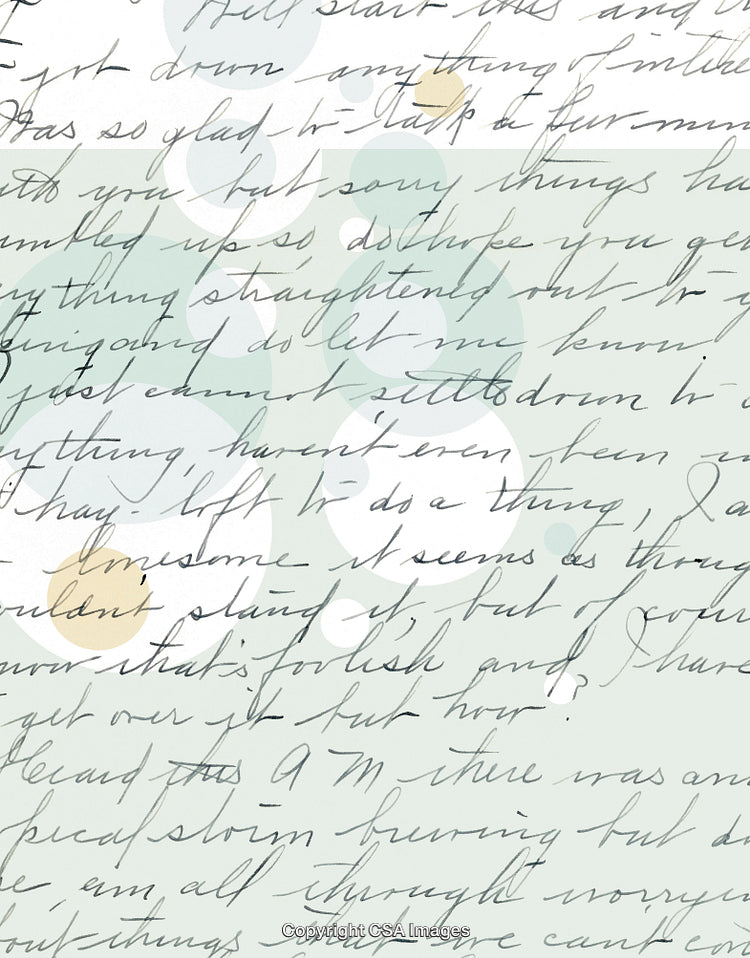 Will start this and
jot down anything of intere
Was so glad to talk a few min
with you but sorry things ha
umbled up so, do hope you get
ything straightened out to y
being and do let me know
just cannot settle down to
ything, haven't even been in
hay-loft to do a thing, I a
lonesome it seems as thoug
ouldn't stand it, but of cour
now that's foolish and I have
get over it but how?
Heard this A M there was an
pical storm brewing but do
e, am all through worryin
bout things that we can't con
Copyright CSA Images